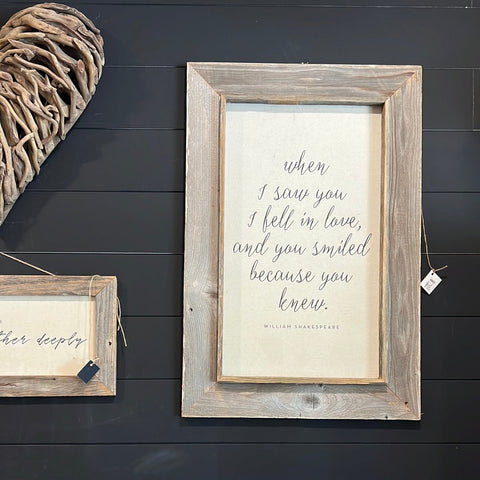 when
I saw you
I fell in love,
and you smiled
because you
knew.
WILLIAM SHAKESPEARE
deeply